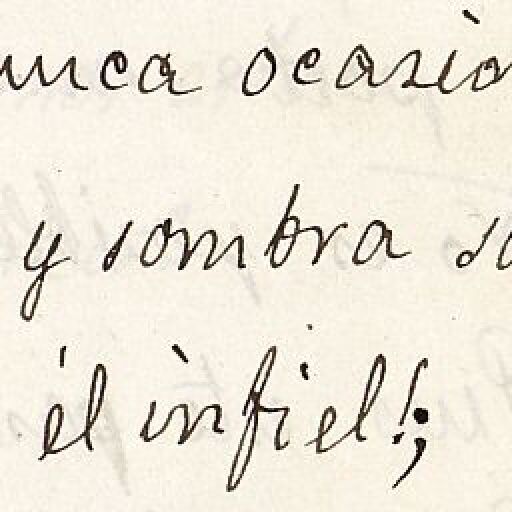 unca ocasio
y sombra so
él infiel!;